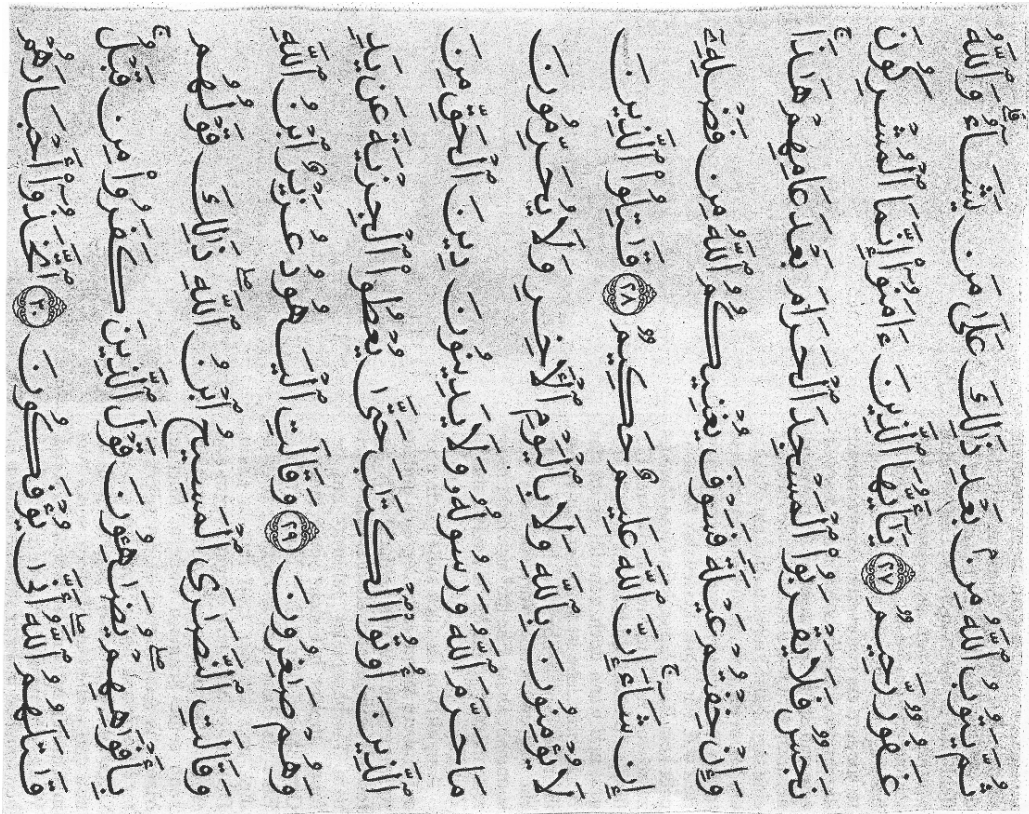 ثُمَّ يَتُوبُ ٱللَّهُ مِنۢ بَعْدِ ذَٰلِكَ عَلَىٰ مَن يَشَآءُ ۗ وَٱللَّهُ
غَفُورٌ رَّحِيمٌ ٢٧ يَٰٓأَيُّهَا ٱلَّذِينَ ءَامَنُوٓا۟ إِنَّمَا ٱلْمُشْرِكُونَ
نَجَسٌ فَلَا يَقْرَبُوا۟ ٱلْمَسْجِدَ ٱلْحَرَامَ بَعْدَ عَامِهِمْ هَٰذَا ۚ
وَإِنْ خِفْتُمْ عَيْلَةً فَسَوْفَ يُغْنِيكُمُ ٱللَّهُ مِن فَضْلِهِۦٓ
إِن شَآءَ ۚ إِنَّ ٱللَّهَ عَلِيمٌ حَكِيمٌ ٢٨ قَٰتِلُوا۟ ٱلَّذِينَ
لَا يُؤْمِنُونَ بِٱللَّهِ وَلَا بِٱلْيَوْمِ ٱلْءَاخِرِ وَلَا يُحَرِّمُونَ
مَا حَرَّمَ ٱللَّهُ وَرَسُولُهُۥ وَلَا يَدِينُونَ دِينَ ٱلْحَقِّ مِنَ
ٱلَّذِينَ أُوتُوا۟ ٱلْكِتَٰبَ حَتَّىٰ يُعْطُوا۟ ٱلْجِزْيَةَ عَن يَدٍ
وَهُمْ صَٰغِرُونَ ٢٩ وَقَالَتِ ٱلْيَهُودُ عُزَيْرٌ ٱبْنُ ٱللَّهِ
وَقَالَتِ ٱلنَّصَٰرَى ٱلْمَسِيحُ ٱبْنُ ٱللَّهِ ۖ ذَٰلِكَ قَوْلُهُم
بِأَفْوَٰهِهِمْ ۖ يُضَٰهِـُٔونَ قَوْلَ ٱلَّذِينَ كَفَرُوا۟ مِن قَبْلُ ۚ
قَٰتَلَهُمُ ٱللَّهُ ۖ أَنَّىٰ يُؤْفَكُونَ ٣٠ ٱتَّخَذُوٓا۟ أَحْبَارَهُمْ